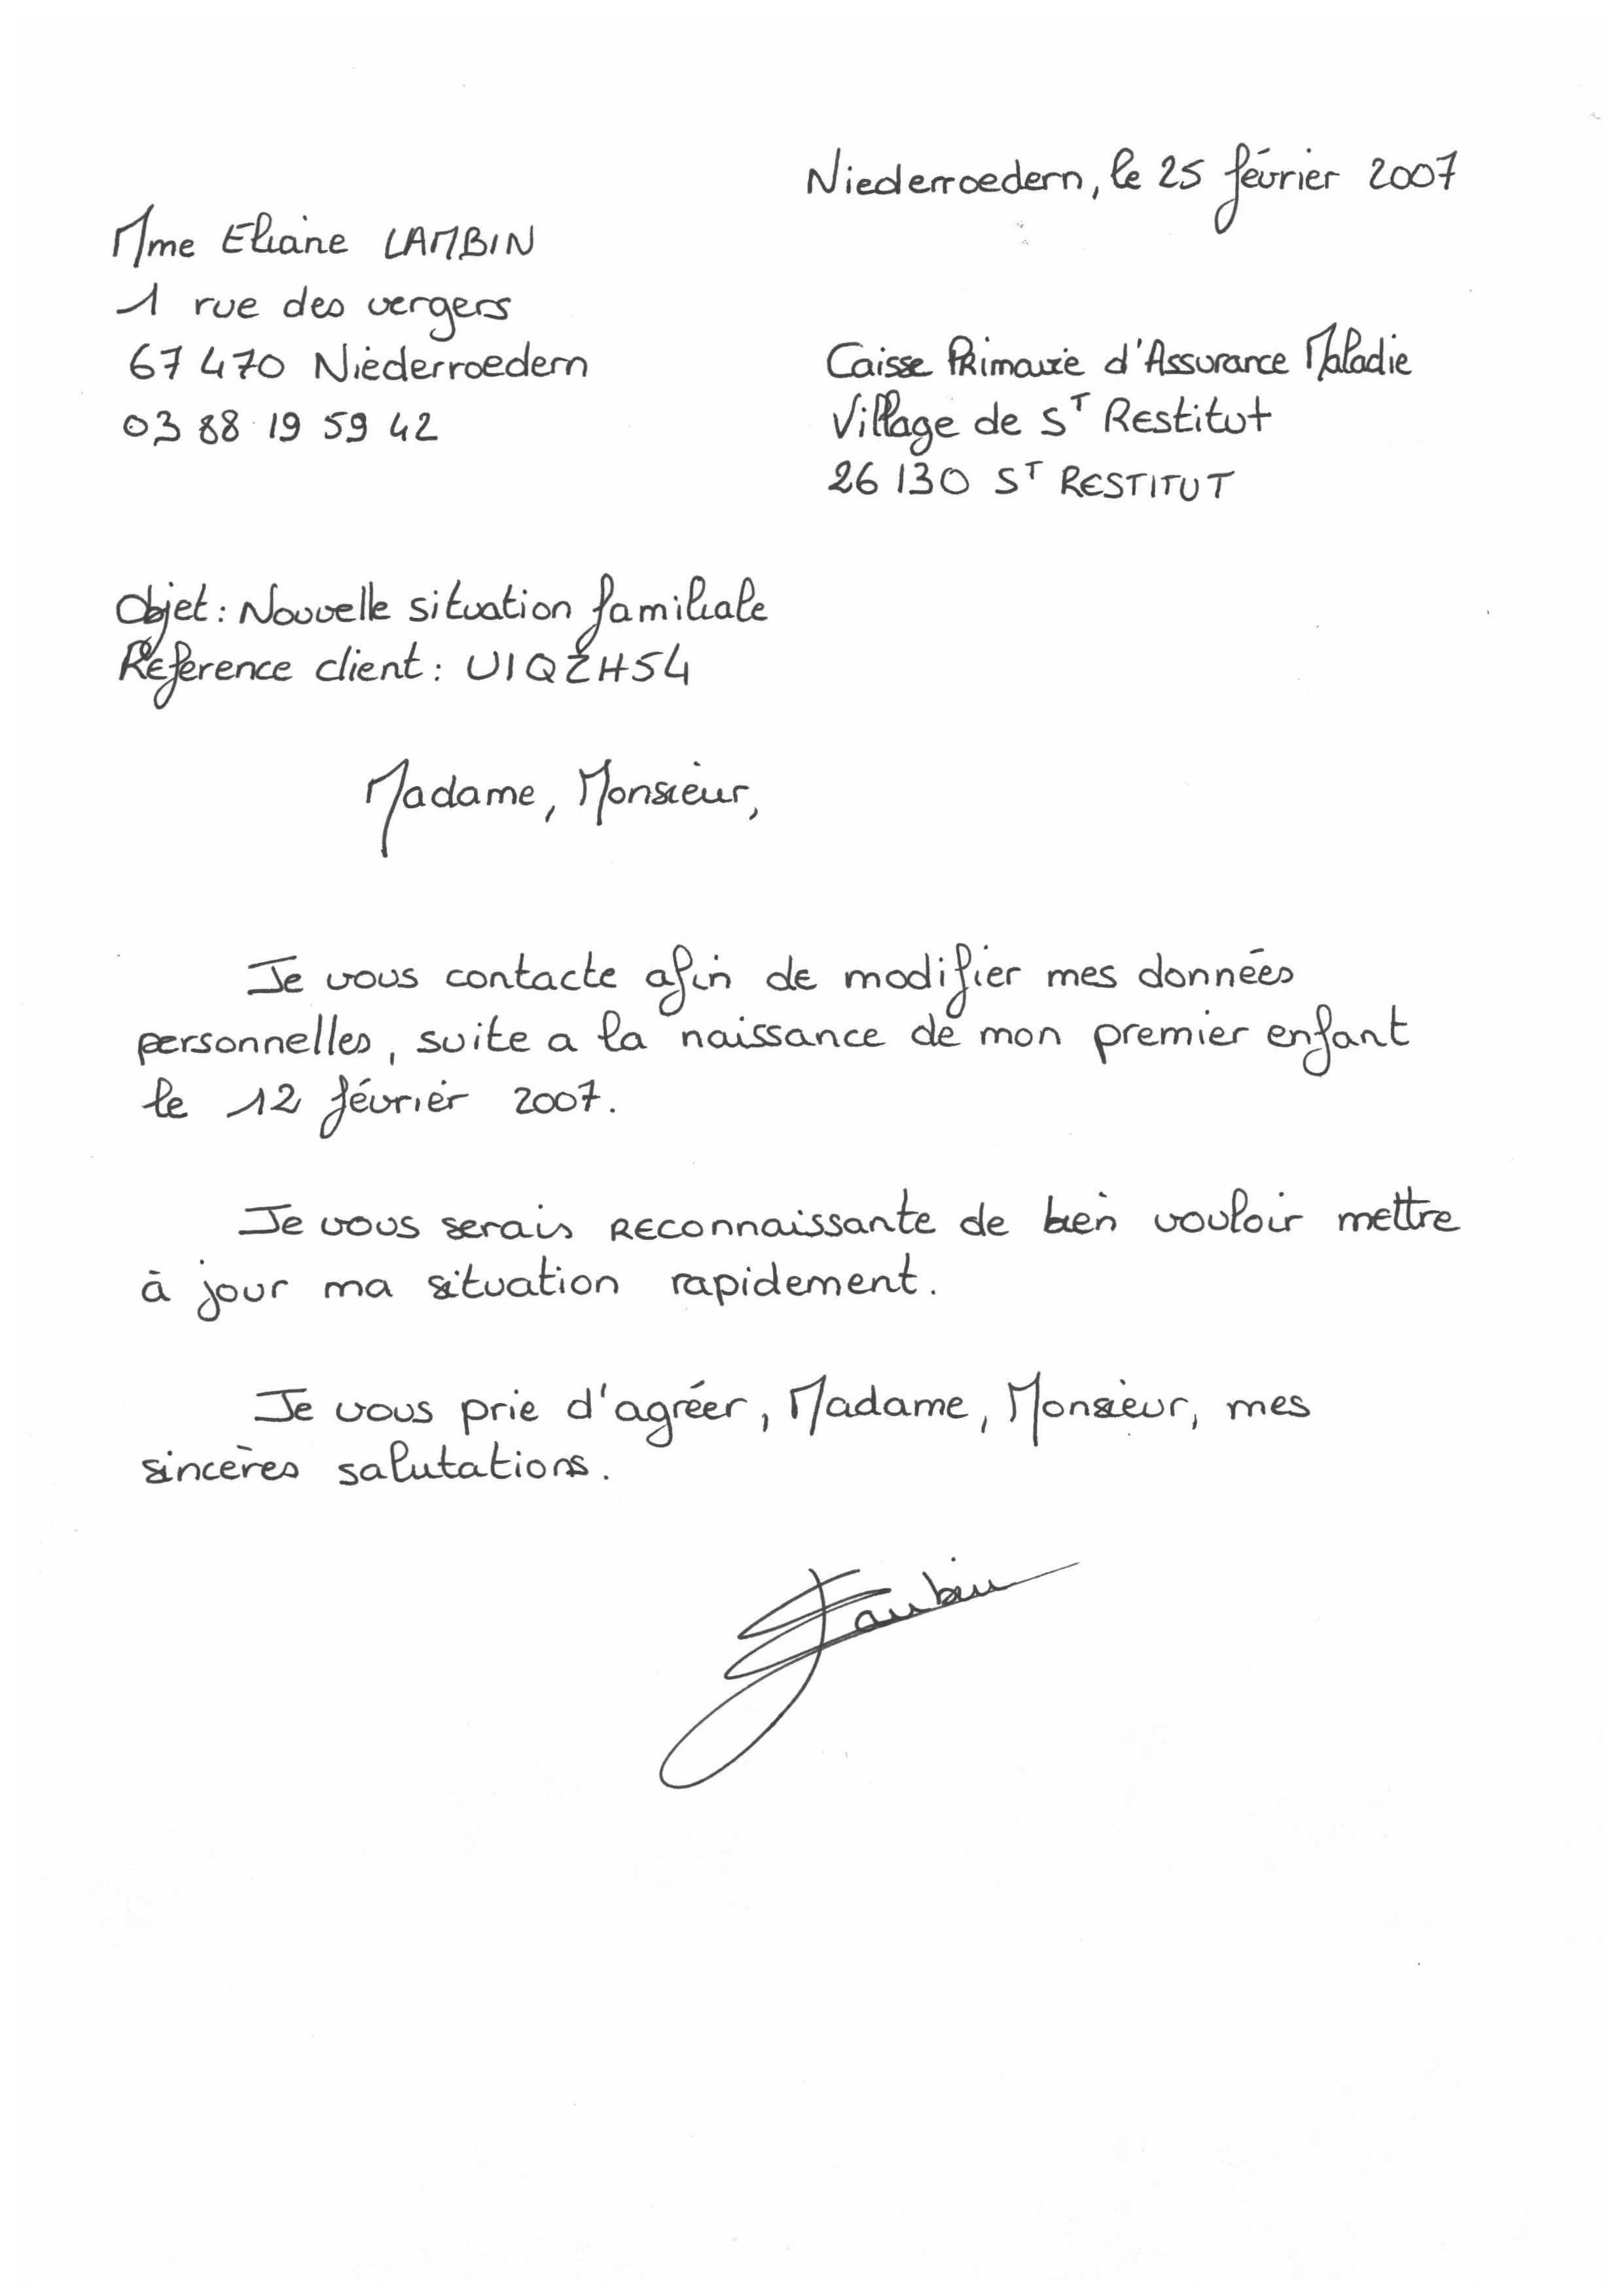 Niederroedern, le 25 février 2007
Mme Eliane LAMBIN
1 rue des vergers
67 470 Niederroedern
03 88 19 59 42
Caisse Primaire d'Assurance Maladie
Village de St Restitut
26 130 St RESTITUT
Objet : Nouvelle situation familiale
Référence client : UIQZH54
Madame, Monsieur,
Je vous contacte afin de modifier mes données
personnelles, suite a la naissance de mon premier enfant
le 12 février 2007.
Je vous serais reconnaissante de bien vouloir mettre
à jour ma situation rapidement.
Je vous prie d'agréer, Madame, Monsieur, mes
sincères salutations.
Lambin